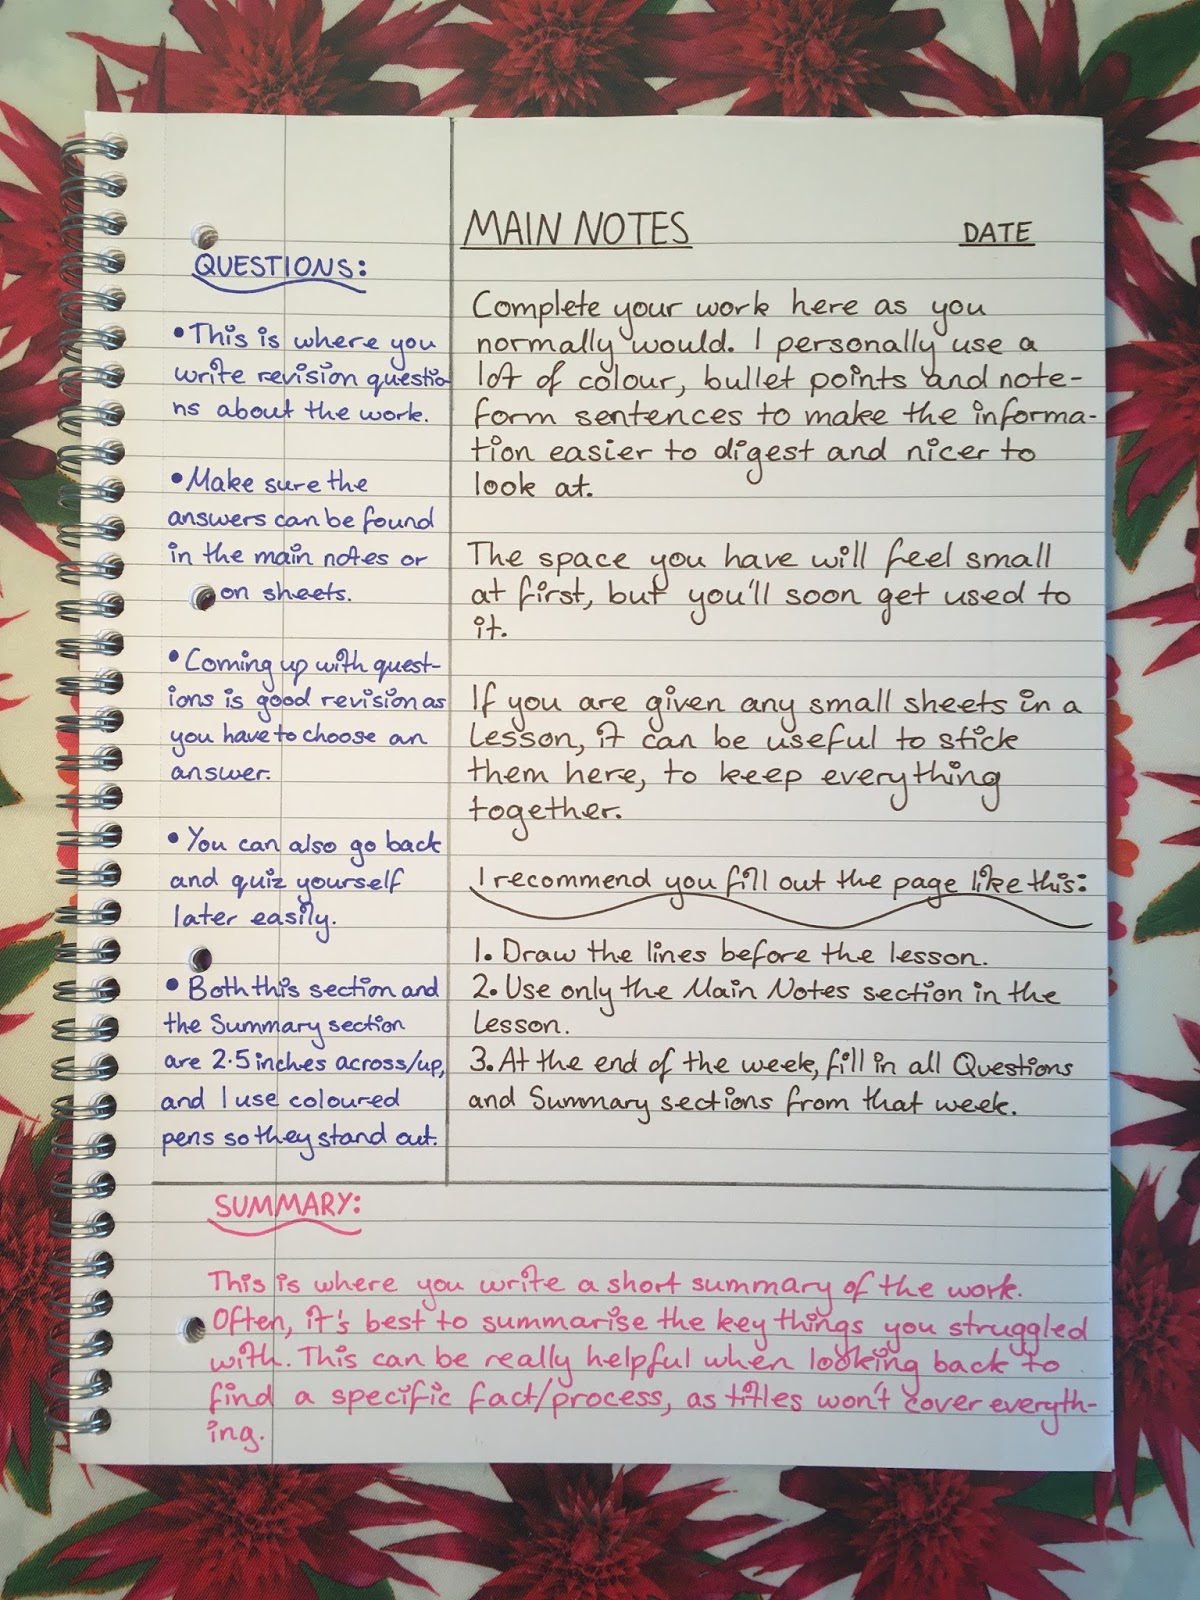 QUESTIONS:
•This is where you
write revision questio
ns about the work.
•Make sure the
answers can be found
in the main notes or
on sheets.
•Coming up with quest-
ions is good revision as
you have to choose an
answer.
•You can also go back
and quiz yourself
later easily.
•Both this section and
the Summary section
are 2.5 inches across/up,
and I use coloured
pens so they stand out.
MAIN NOTES DATE
Complete your work here as you
normally would. I personally use a
lot of colour, bullet points and note-
form sentences to make the informa-
tion easier to digest and nicer to
look at.
The space you have will feel small
at first, but you'll soon get used to
it.
If you are given any small sheets in a
lesson, it can be useful to stick
them here, to keep everything
together.
I recommend you fill out the page like this:
1. Draw the lines before the lesson.
2. Use only the Main Notes section in the
lesson.
3. At the end of the week, fill in all Questions
and Summary sections from that week.
SUMMARY:
This is where you write a short summary of the work.
Often, it's best to summarise the key things you struggled
with. This can be really helpful when looking back to
find a specific fact/process, as titles won't cover everyth-
ing.